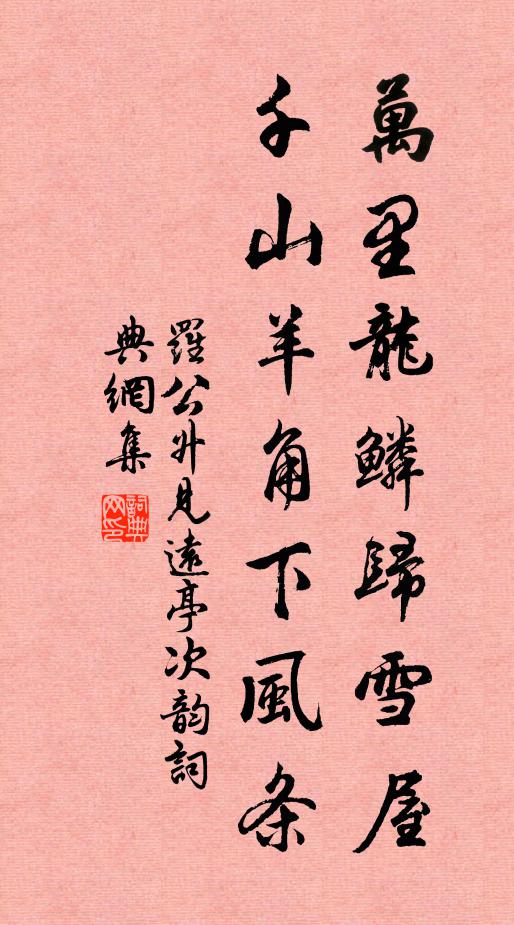 萬里龍鱗歸雪屋
千山羊角下風条
羅公升見遠亭次韵詞
典網集
詞典网印